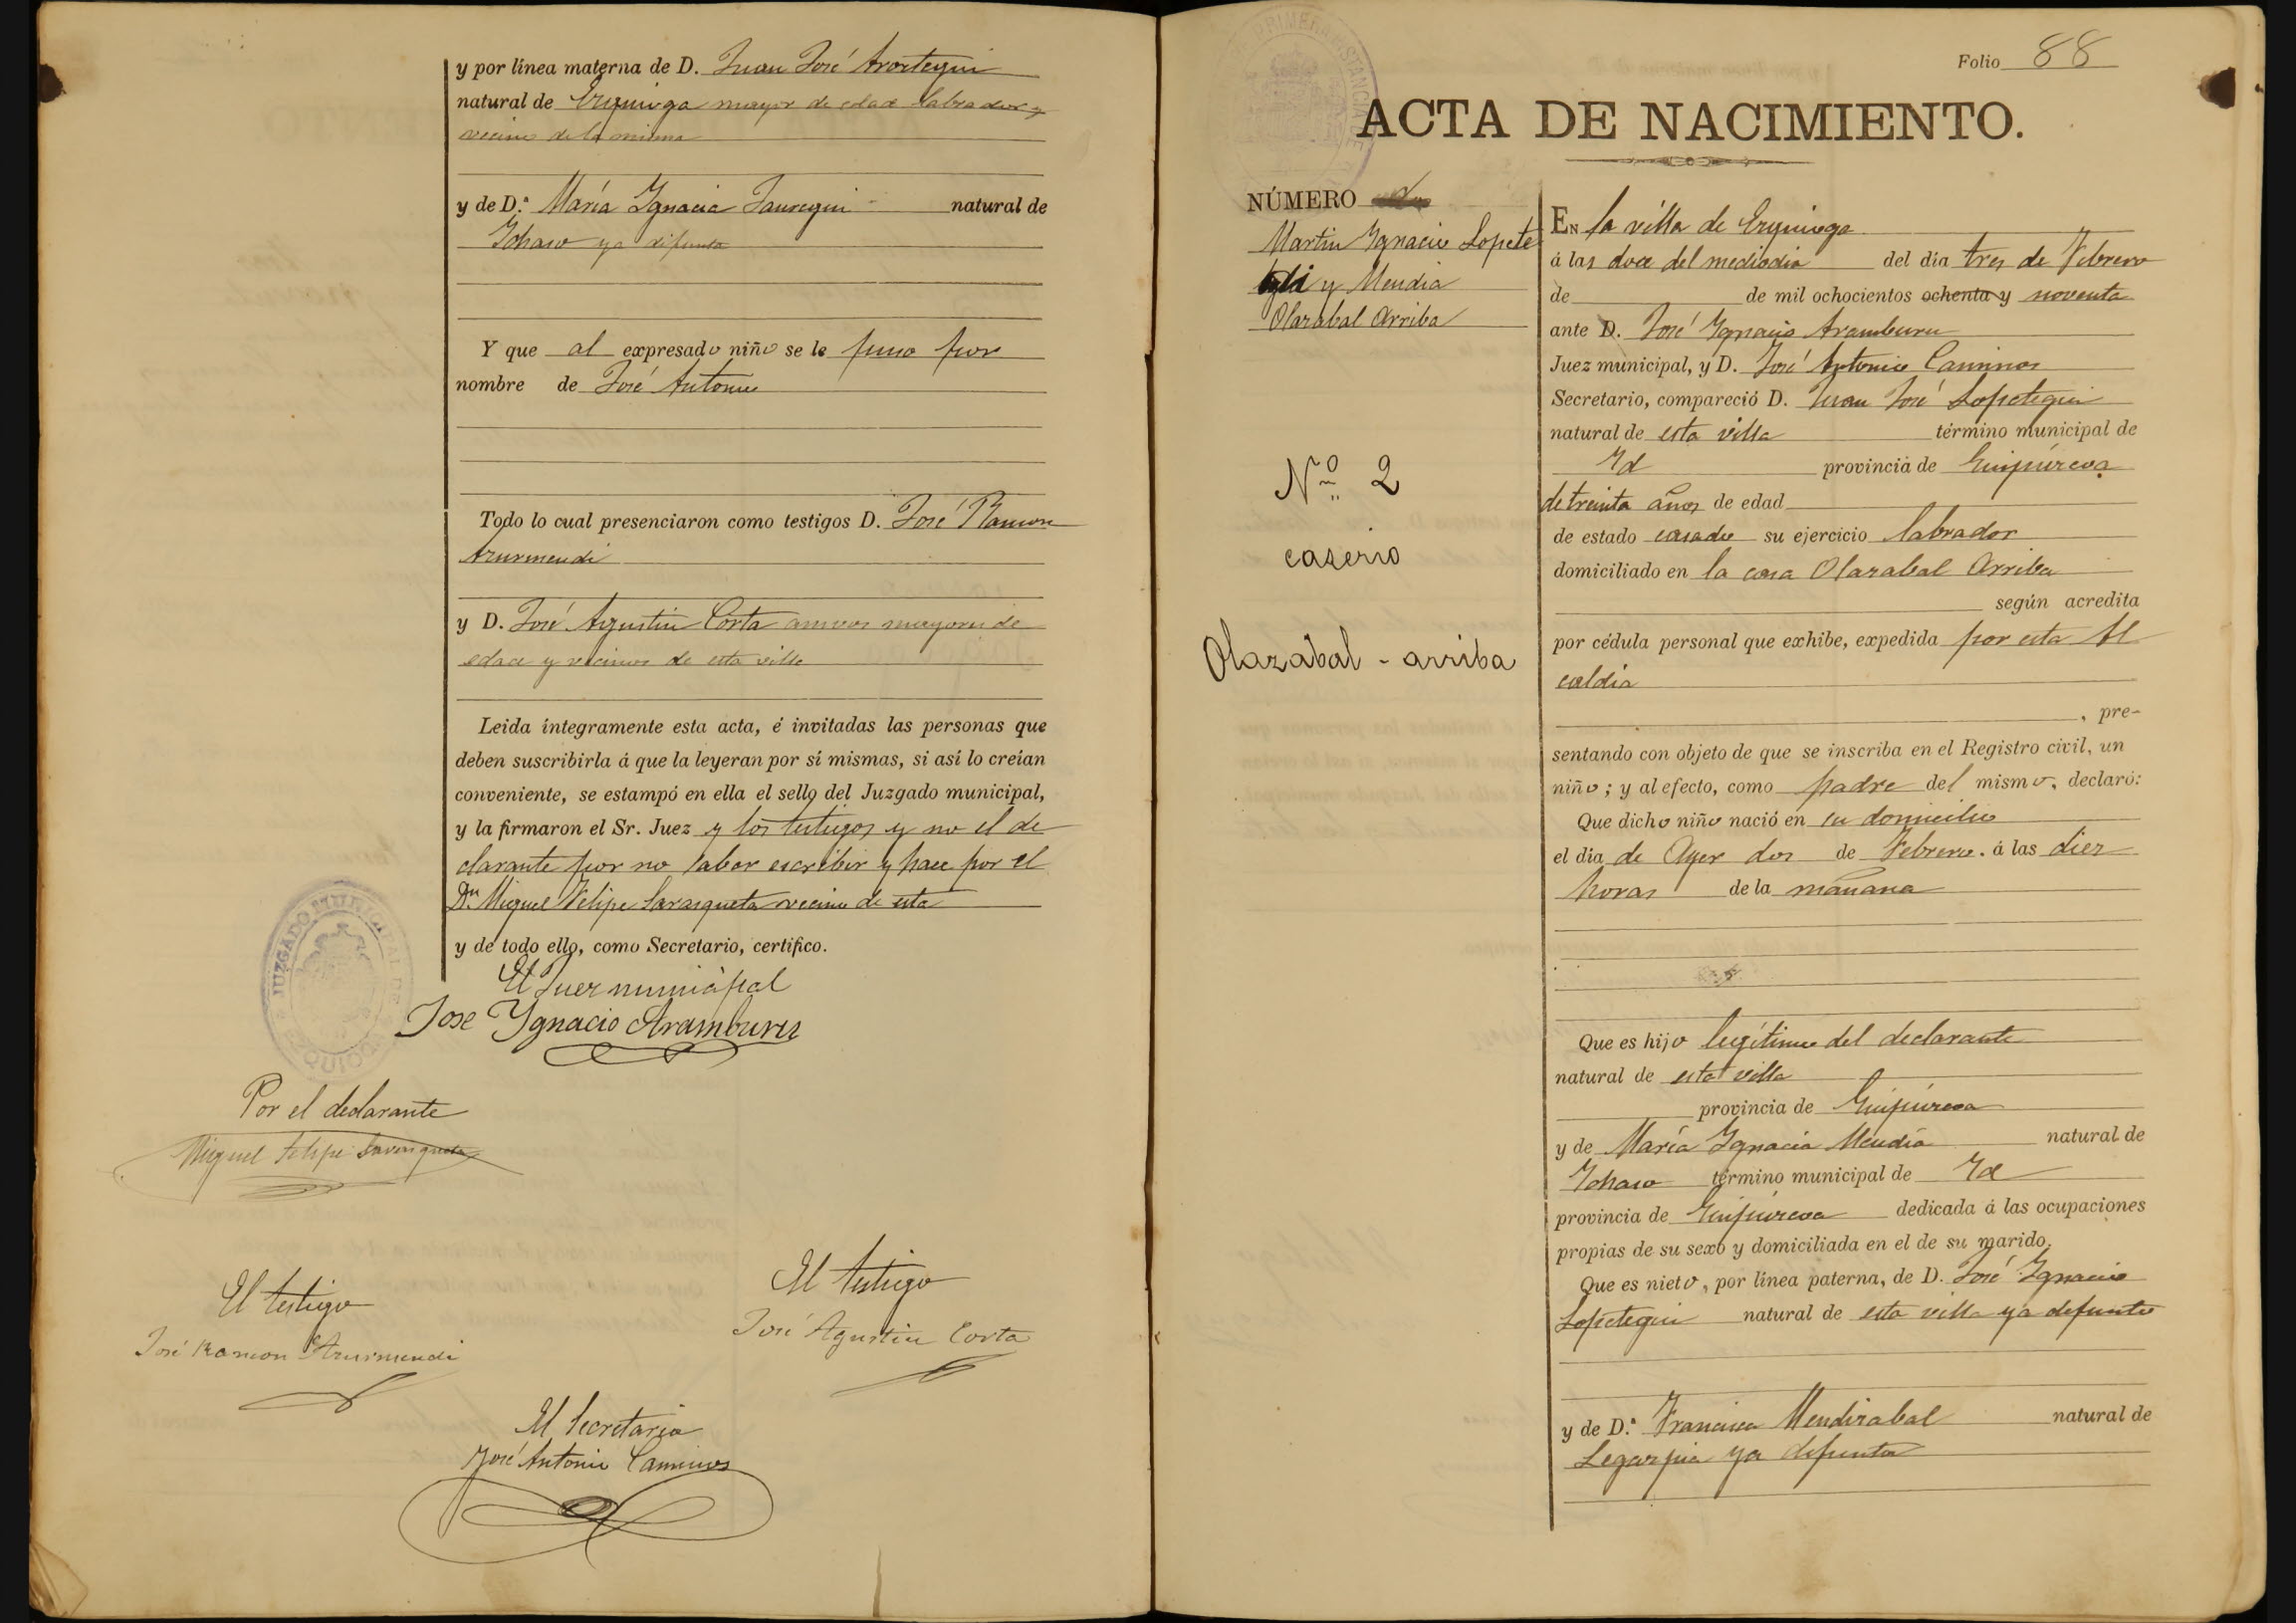 y por línea materna de D. Juan José Aroztegui
natural de Ezquioga mayor de edad labrador y
vecino de la misma
y de D.ª María Ygnacia Jauregui natural de
Ychaso ya difunta
Y que al expresado niño se le puso por
nombre de José Antonio
Todo lo cual presenciaron como testigos D. José Ramon
Azurmendi
y D. José Agustin Corta amvos mayores de
edad y vecinos de esta villa
Leida íntegramente esta acta, é invitadas las personas que
deben suscribirla á que la leyeran por sí mismas, si así lo creían
conveniente, se estampó en ella el sello del Juzgado municipal,
y la firmaron el Sr. Juez y los testigos y no el de
clarante por no saber escribir y hace por el
Dn. Miguel Felipe Sarasqueta vecino de esta
y de todo ello, como Secretario, certifico.
JUZGADO MUNICIPAL DE
El Juez municipal
Jose Ygnacio Aramburu
Por el declarante
Miguel Felipe Sarasqueta
El testigo
José Agustin Corta
El testigo
José Ramon Azurmendi
El Secretario
José Antonio Caminos
Folio 88
PRIMERA INSTANCIA
ACTA DE NACIMIENTO.
NÚMERO
Martin Ygnacio Lopete
gui y Mendia
Olazabal Arriba
Nº 2
caserio
Olazabal - arriba
EN la villa de Ezquioga
á las doce del mediodia del día tres de Febrero
de de mil ochocientos ochenta y noventa
ante D. José Ygnacio Aramburu
Juez municipal, y D. José Antonio Caminos
Secretario, compareció D. Juan José Lopetegui
natural de esta villa término municipal de
Yd provincia de Guipúzcoa
de treinta años de edad
de estado casado su ejercicio labrador
domiciliado en la casa Olazabal Arriba
según acredita
por cédula personal que exhibe, expedida por esta Al
caldia
, pre-
sentando con objeto de que se inscriba en el Registro civil, un
niño; y al efecto, como padre del mismo, declaró:
Que dicho niño nació en su domicilio
el día de Ayer dos de Febrero. á las diez
horas de la mañana
Que es hijo legítimo del declarante
natural de esta villa
provincia de Guipúzcoa
y de María Ygnacia Mendia natural de
Ychaso término municipal de Yd
provincia de Guipúzcoa dedicada á las ocupaciones
propias de su sexo y domiciliada en el de su marido.
Que es nieto, por línea paterna, de D. José Ygnacio
Lopetegui natural de esta villa ya defunto
y de D.ª Francisca Mendizabal natural de
Legazpia ya defunta